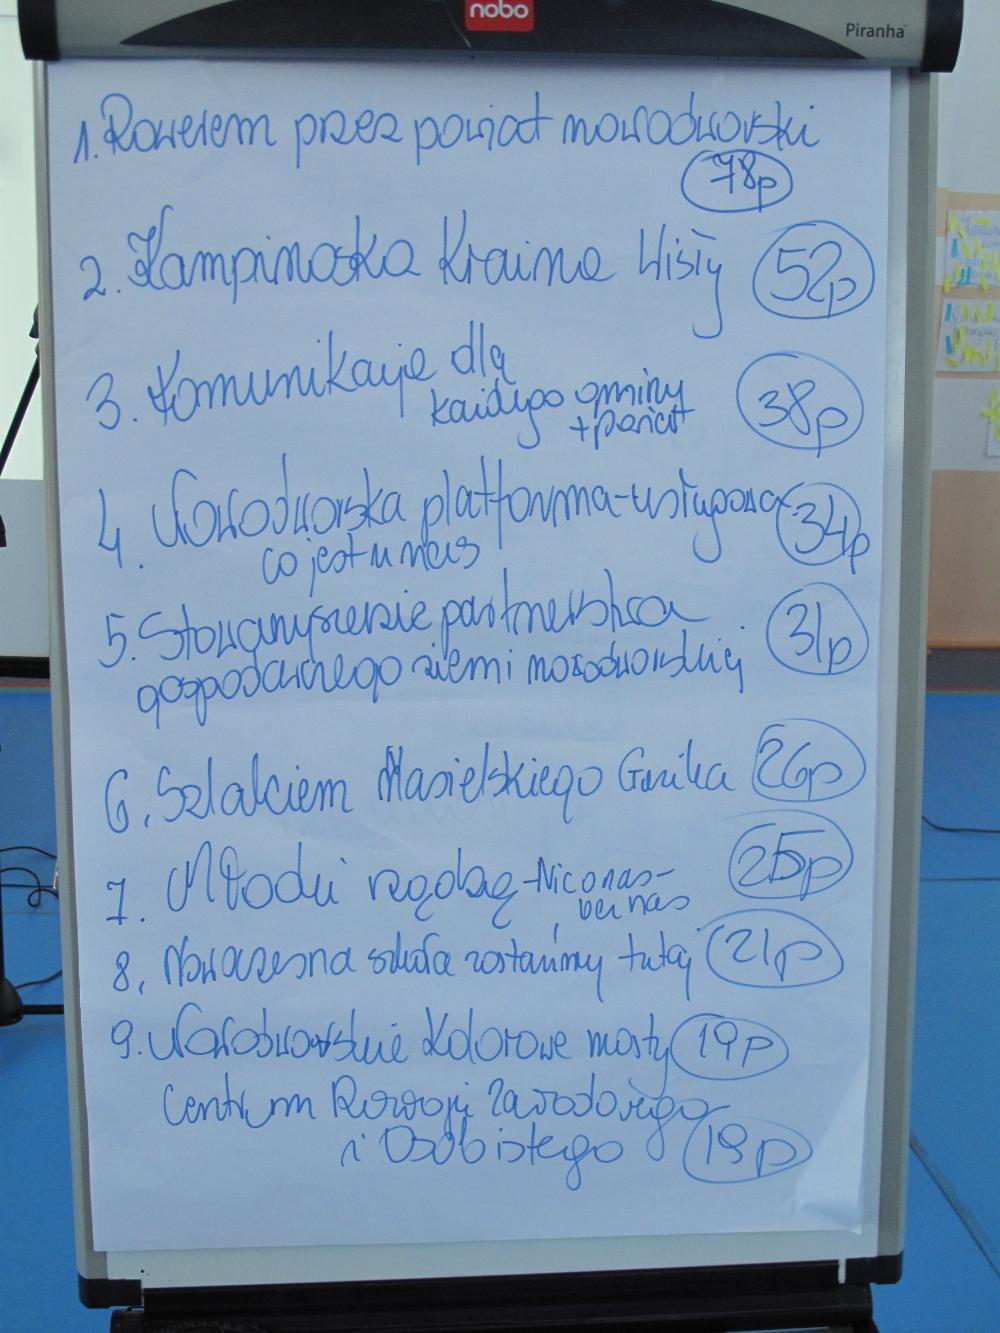 nobo
Piranha
1. Rowerem przez powiat nowodworski
78p
2. Kampinoska Kraina Wisły 52p
3. Komunikacja dla
każdego gminy
+ powiat 38p
4. Nowodworska platforma-usługowa 34p
co jest u nas
5. Stowarzyszenie partnerstwa 31p
gospodarnego ziemi nowodworskiej
6. Szlakiem Masielskiego Guzika 26p
7. Młodzi rządzą - Nic o nas - 25p
bez nas
8. Nowoczesna szkoła zostańmy tutaj 21p
9. Nowodworskie kolorowe mosty 19p
Centrum Rozwoju Zawodowego
i Osobistego 19p